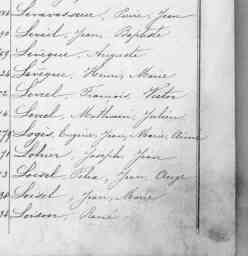 Levavasseur, Pierre, Jean
Leveil, Jean, Baptiste
Levêque, Auguste
Levêque, Henri, Marie
Levesel, François, Victor
Levesel, Mathurin, Julien
Logis, Eugène, Jean, Marie, Aimé
Lohner, Joseph, Jean
Loisel, Jean, Ange
Loisel, Jean, Marie
Loison, René